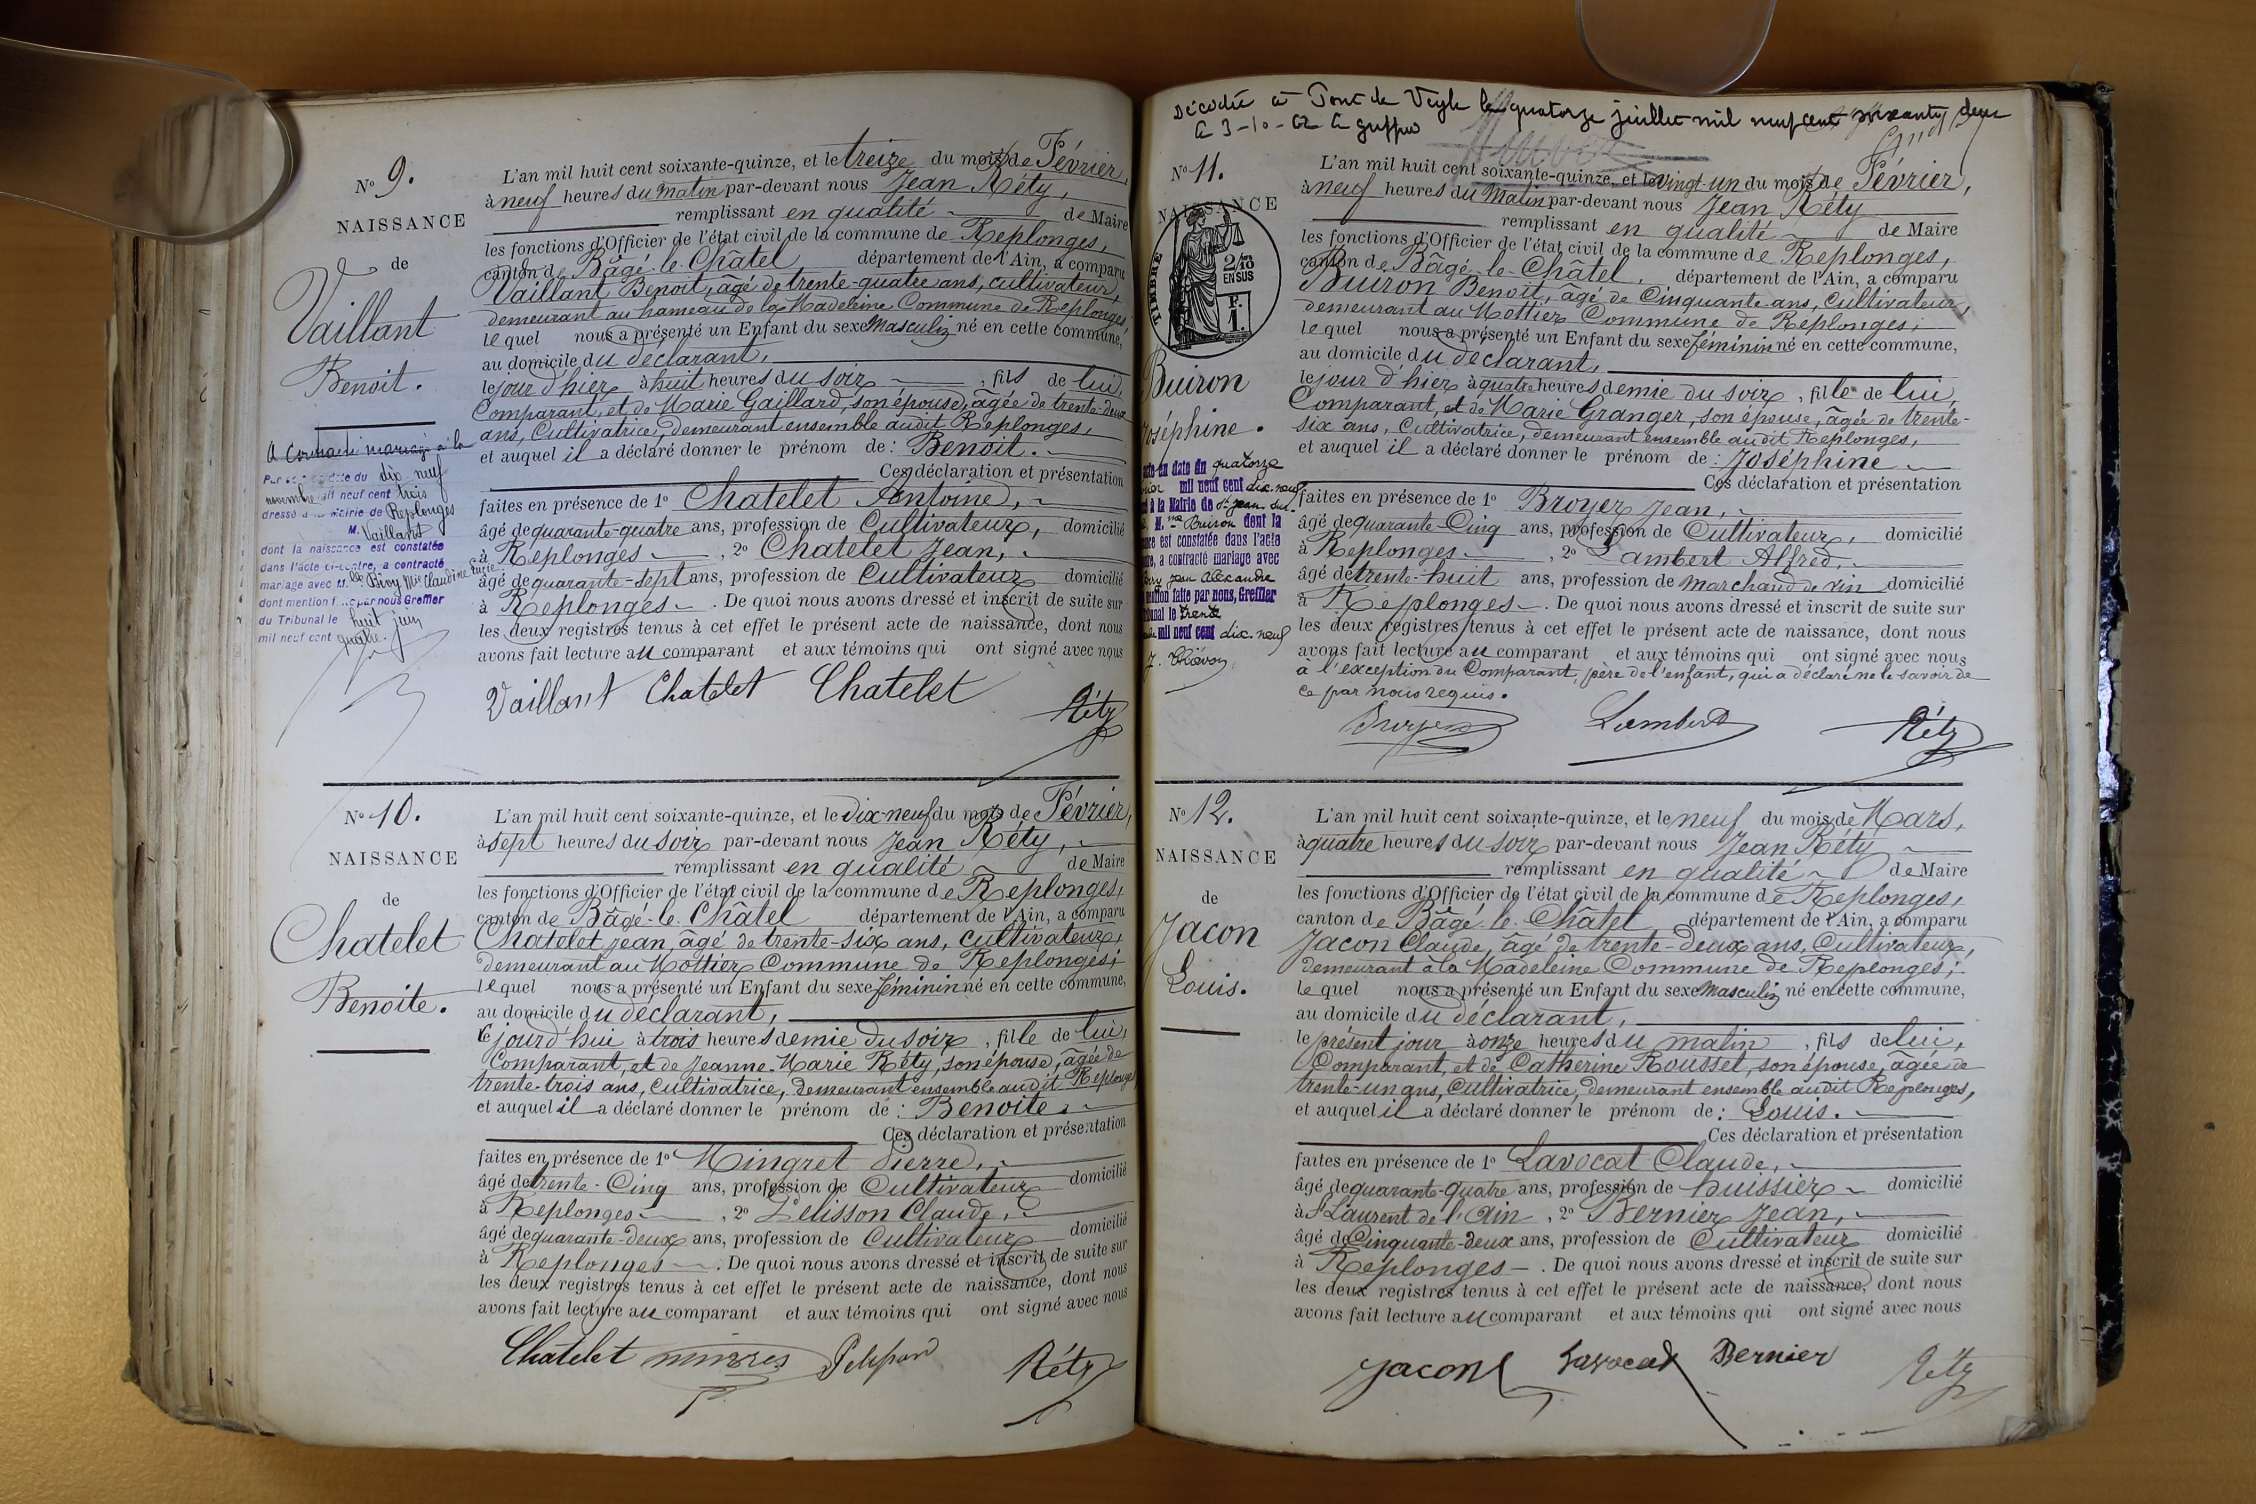 N° 9.
NAISSANCE
de
Vaillant
Benoit.
a contracté mariage à la
dix-neuf
novembre mil neuf cent trois
dressé à la Mairie de Replonges
M. Vaillant
dont la naissance est constatée
dans l'acte ci-contre, a contracté
mariage avec M.lle Bivy Mie Claudine Lucie
dont mention faite par nous Greffier
du Tribunal le huit juin
mil neuf cent quatre.
L'an mil huit cent soixante-quinze, et le treize du mois de Février,
à neuf heures du matin par-devant nous Jean Réty,
remplissant en qualité de Maire
les fonctions d'Officier de l'état civil de la commune de Replonges,
canton de Bâgé-le-Châtel département de l'Ain, a comparu
Vaillant Benoit, âgé de trente-quatre ans, cultivateur,
demeurant au hameau de la Madeleine Commune de Replonges;
lequel nous a présenté un Enfant du sexe Masculin né en cette commune,
au domicile du déclarant,
le jour d'hier à huit heures du soir, fils de lui,
Comparant, et de Marie Gaillard, son épouse, âgée de trente-deux
ans, Cultivatrice, demeurant ensemble audit Replonges,
et auquel il a déclaré donner le prénom de : Benoit.
Ces déclaration et présentation
faites en présence de 1° Chatelet Antoine,
âgé de quarante-quatre ans, profession de Cultivateur, domicilié
à Replonges, 2° Chatelet Jean,
âgé de quarante-sept ans, profession de Cultivateur domicilié
à Replonges. De quoi nous avons dressé et inscrit de suite sur
les deux registres tenus à cet effet le présent acte de naissance, dont nous
avons fait lecture au comparant et aux témoins qui ont signé avec nous
Vaillant Chatelet Chatelet
Réty
N° 10.
NAISSANCE
de
Chatelet
Benoite.
L'an mil huit cent soixante-quinze, et le dix-neuf du mois de Février,
à sept heures du soir par-devant nous Jean Réty,
remplissant en qualité de Maire
les fonctions d'Officier de l'état civil de la commune de Replonges,
canton de Bâgé-le-Châtel département de l'Ain, a comparu
Chatelet Jean, âgé de trente-six ans, cultivateur,
demeurant au Mottier Commune de Replonges;
lequel nous a présenté un Enfant du sexe féminin né en cette commune,
au domicile du déclarant,
le jourd'hui à trois heures demie du soir, fille de lui,
Comparant, et de Jeanne-Marie Réty, son épouse, âgée de
trente-trois ans, Cultivatrice, demeurant ensemble audit Replonges
et auquel il a déclaré donner le prénom de : Benoite.
Ces déclaration et présentation
faites en présence de 1° Mingret Pierre,
âgé de trente-Cinq ans, profession de Cultivateur domicilié
à Replonges, 2° Pelisson Claude,
âgé de quarante-deux ans, profession de Cultivateur domicilié
à Replonges. De quoi nous avons dressé et inscrit de suite sur
les deux registres tenus à cet effet le présent acte de naissance, dont nous
avons fait lecture au comparant et aux témoins qui ont signé avec nous
Chatelet
Réty
Décédée à Pont de Veyle le quatorze juillet mil neuf cent soixante deux
Le 3-10-62 Le greffier
N° 11.
NAISSANCE
TIMBRE
2/10
EN SUS
F.
1.
Buiron
Joséphine.
acte en date du quatorze
mil neuf cent dix-neuf
à la Mairie de St Jean sur
M.me Buiron dont la
est constatée dans l'acte
a contracté mariage avec
Jean Alexandre
faite par nous, Greffier
le trente
mil neuf cent dix-neuf
L'an mil huit cent soixante-quinze, et le vingt-un du mois de Février,
à neuf heures du Matin par-devant nous Jean Réty
remplissant en qualité de Maire
les fonctions d'Officier de l'état civil de la commune de Replonges,
canton de Bâgé-le-Châtel, département de l'Ain, a comparu
Buiron Benoit, âgé de Cinquante ans, Cultivateur,
demeurant au Mottier Commune de Replonges;
lequel nous a présenté un Enfant du sexe féminin né en cette commune,
au domicile du déclarant,
le jour d'hier à quatre heures demie du soir, fille de lui,
Comparant, et de Marie Granger, son épouse, âgée de trente-
six ans, Cultivatrice, demeurant ensemble audit Replonges,
et auquel il a déclaré donner le prénom de : Joséphine
Ces déclaration et présentation
faites en présence de 1° Broyer Jean,
âgé de quarante-Cinq ans, profession de Cultivateur, domicilié
à Replonges, 2° Lambert Alfred,
âgé de trente-huit ans, profession de marchand de vin domicilié
à Replonges. De quoi nous avons dressé et inscrit de suite sur
les deux registres tenus à cet effet le présent acte de naissance, dont nous
avons fait lecture au comparant et aux témoins qui ont signé avec nous
à l'exception du Comparant, père de l'enfant, qui a déclaré ne le savoir de
ce par nous requis.
Broyer Lambert Réty
N° 12.
NAISSANCE
de
Jacon
Louis.
L'an mil huit cent soixante-quinze, et le neuf du mois de Mars,
à quatre heures du soir par-devant nous Jean Réty
remplissant en qualité de Maire
les fonctions d'Officier de l'état civil de la commune de Replonges,
canton de Bâgé-le-Châtel département de l'Ain, a comparu
Jacon Claude, âgé de trente-deux ans, Cultivateur,
demeurant à la Madeleine Commune de Replonges;
lequel nous a présenté un Enfant du sexe Masculin né en cette commune,
au domicile du déclarant,
le présent jour à onze heures du matin, fils de lui,
Comparant, et de Catherine Rousset, son épouse, âgée de
trente-un ans, Cultivatrice, demeurant ensemble audit Replonges,
et auquel il a déclaré donner le prénom de : Louis.
Ces déclaration et présentation
faites en présence de 1° Lavocat Claude,
âgé de quarante-quatre ans, profession de huissier domicilié
à St Laurent de l'Ain, 2° Bernier Jean,
âgé de Cinquante-deux ans, profession de Cultivateur domicilié
à Replonges. De quoi nous avons dressé et inscrit de suite sur
les deux registres tenus à cet effet le présent acte de naissance, dont nous
avons fait lecture au comparant et aux témoins qui ont signé avec nous
Jacon Lavocat Bernier Réty